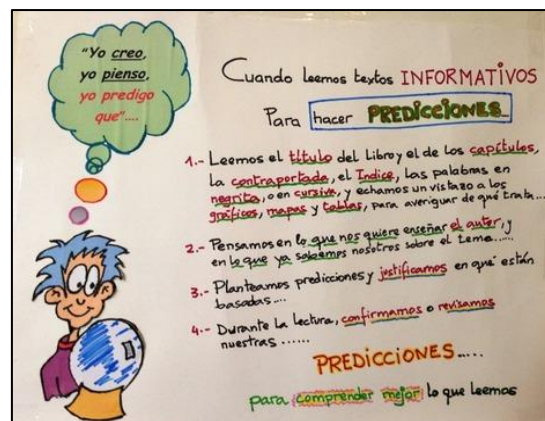 "Yo creo,
yo pienso,
yo predigo
que"....
Cuando leemos textos INFORMATIVOS
Para hacer PREDICCIONES...
1.- Leemos el título del Libro y el de los capítulos,
la contraportada, el Indice, las palabras en
negrita, o en cursiva, y echamos un vistazo a los
gráficos, mapas y tablas, para averiguar de qué trata...
2.- Pensamos en lo que nos quiere enseñar el autor, y
en lo que ya sabemos nosotros sobre el tema.....
3.- Planteamos predicciones y justificamos en qué están
basadas....
4.- Durante la lectura, confirmamos o revisamos
nuestras ......
PREDICCIONES....
para comprender mejor lo que leemos